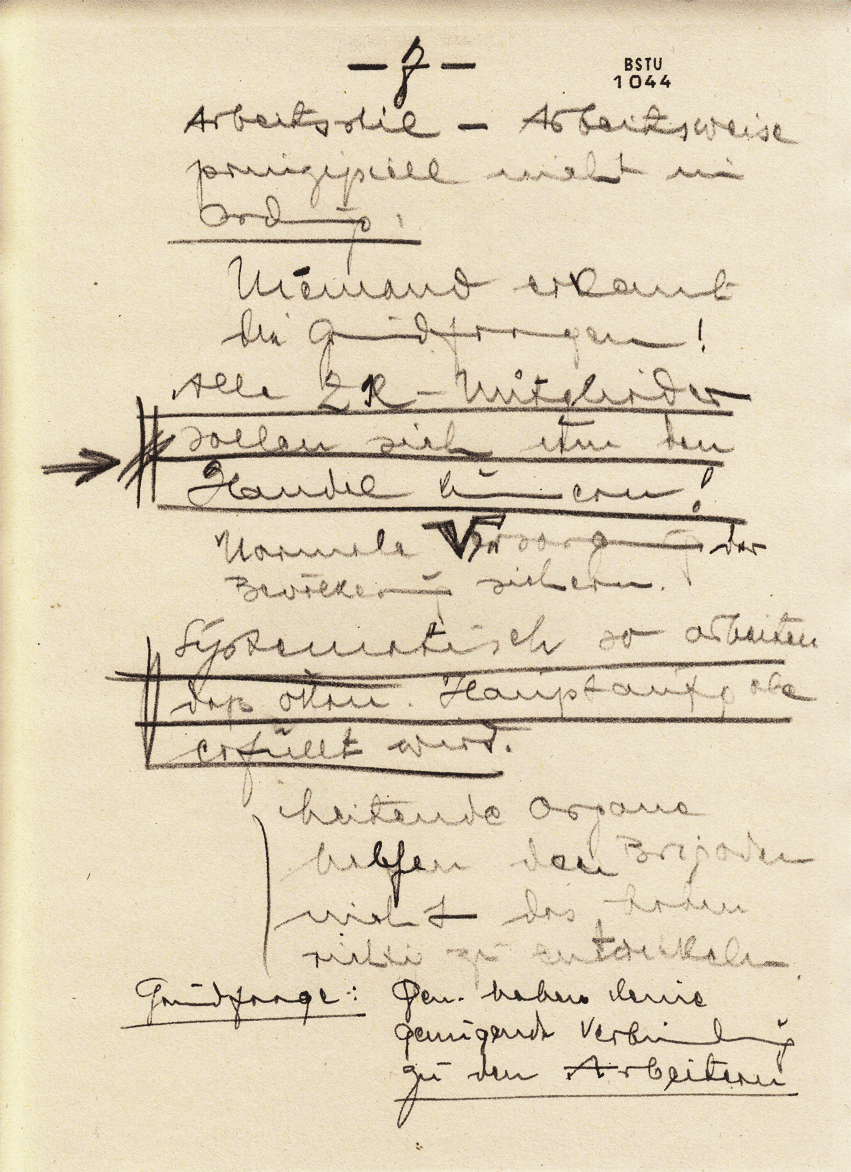 – 7 –
BSTU
1044
Arbeitsstil – Arbeitsweise
prinzipiell nicht in
Ordnung!
Niemand erkannt
die Grundfragen!
Alle ZK – Mitglieder
sollen sich um den
Handel kümmern!
Normale Versorgung der
Bevölkerung sichern.
Systematisch so arbeiten
daß ökon. Hauptaufgabe
erfüllt wird.
Leitende Organe
helfen den Brigaden
nicht das
richtig zu entwickeln
Grundfrage: Gen. haben keine
genügende Verbindung
zu den Arbeitern